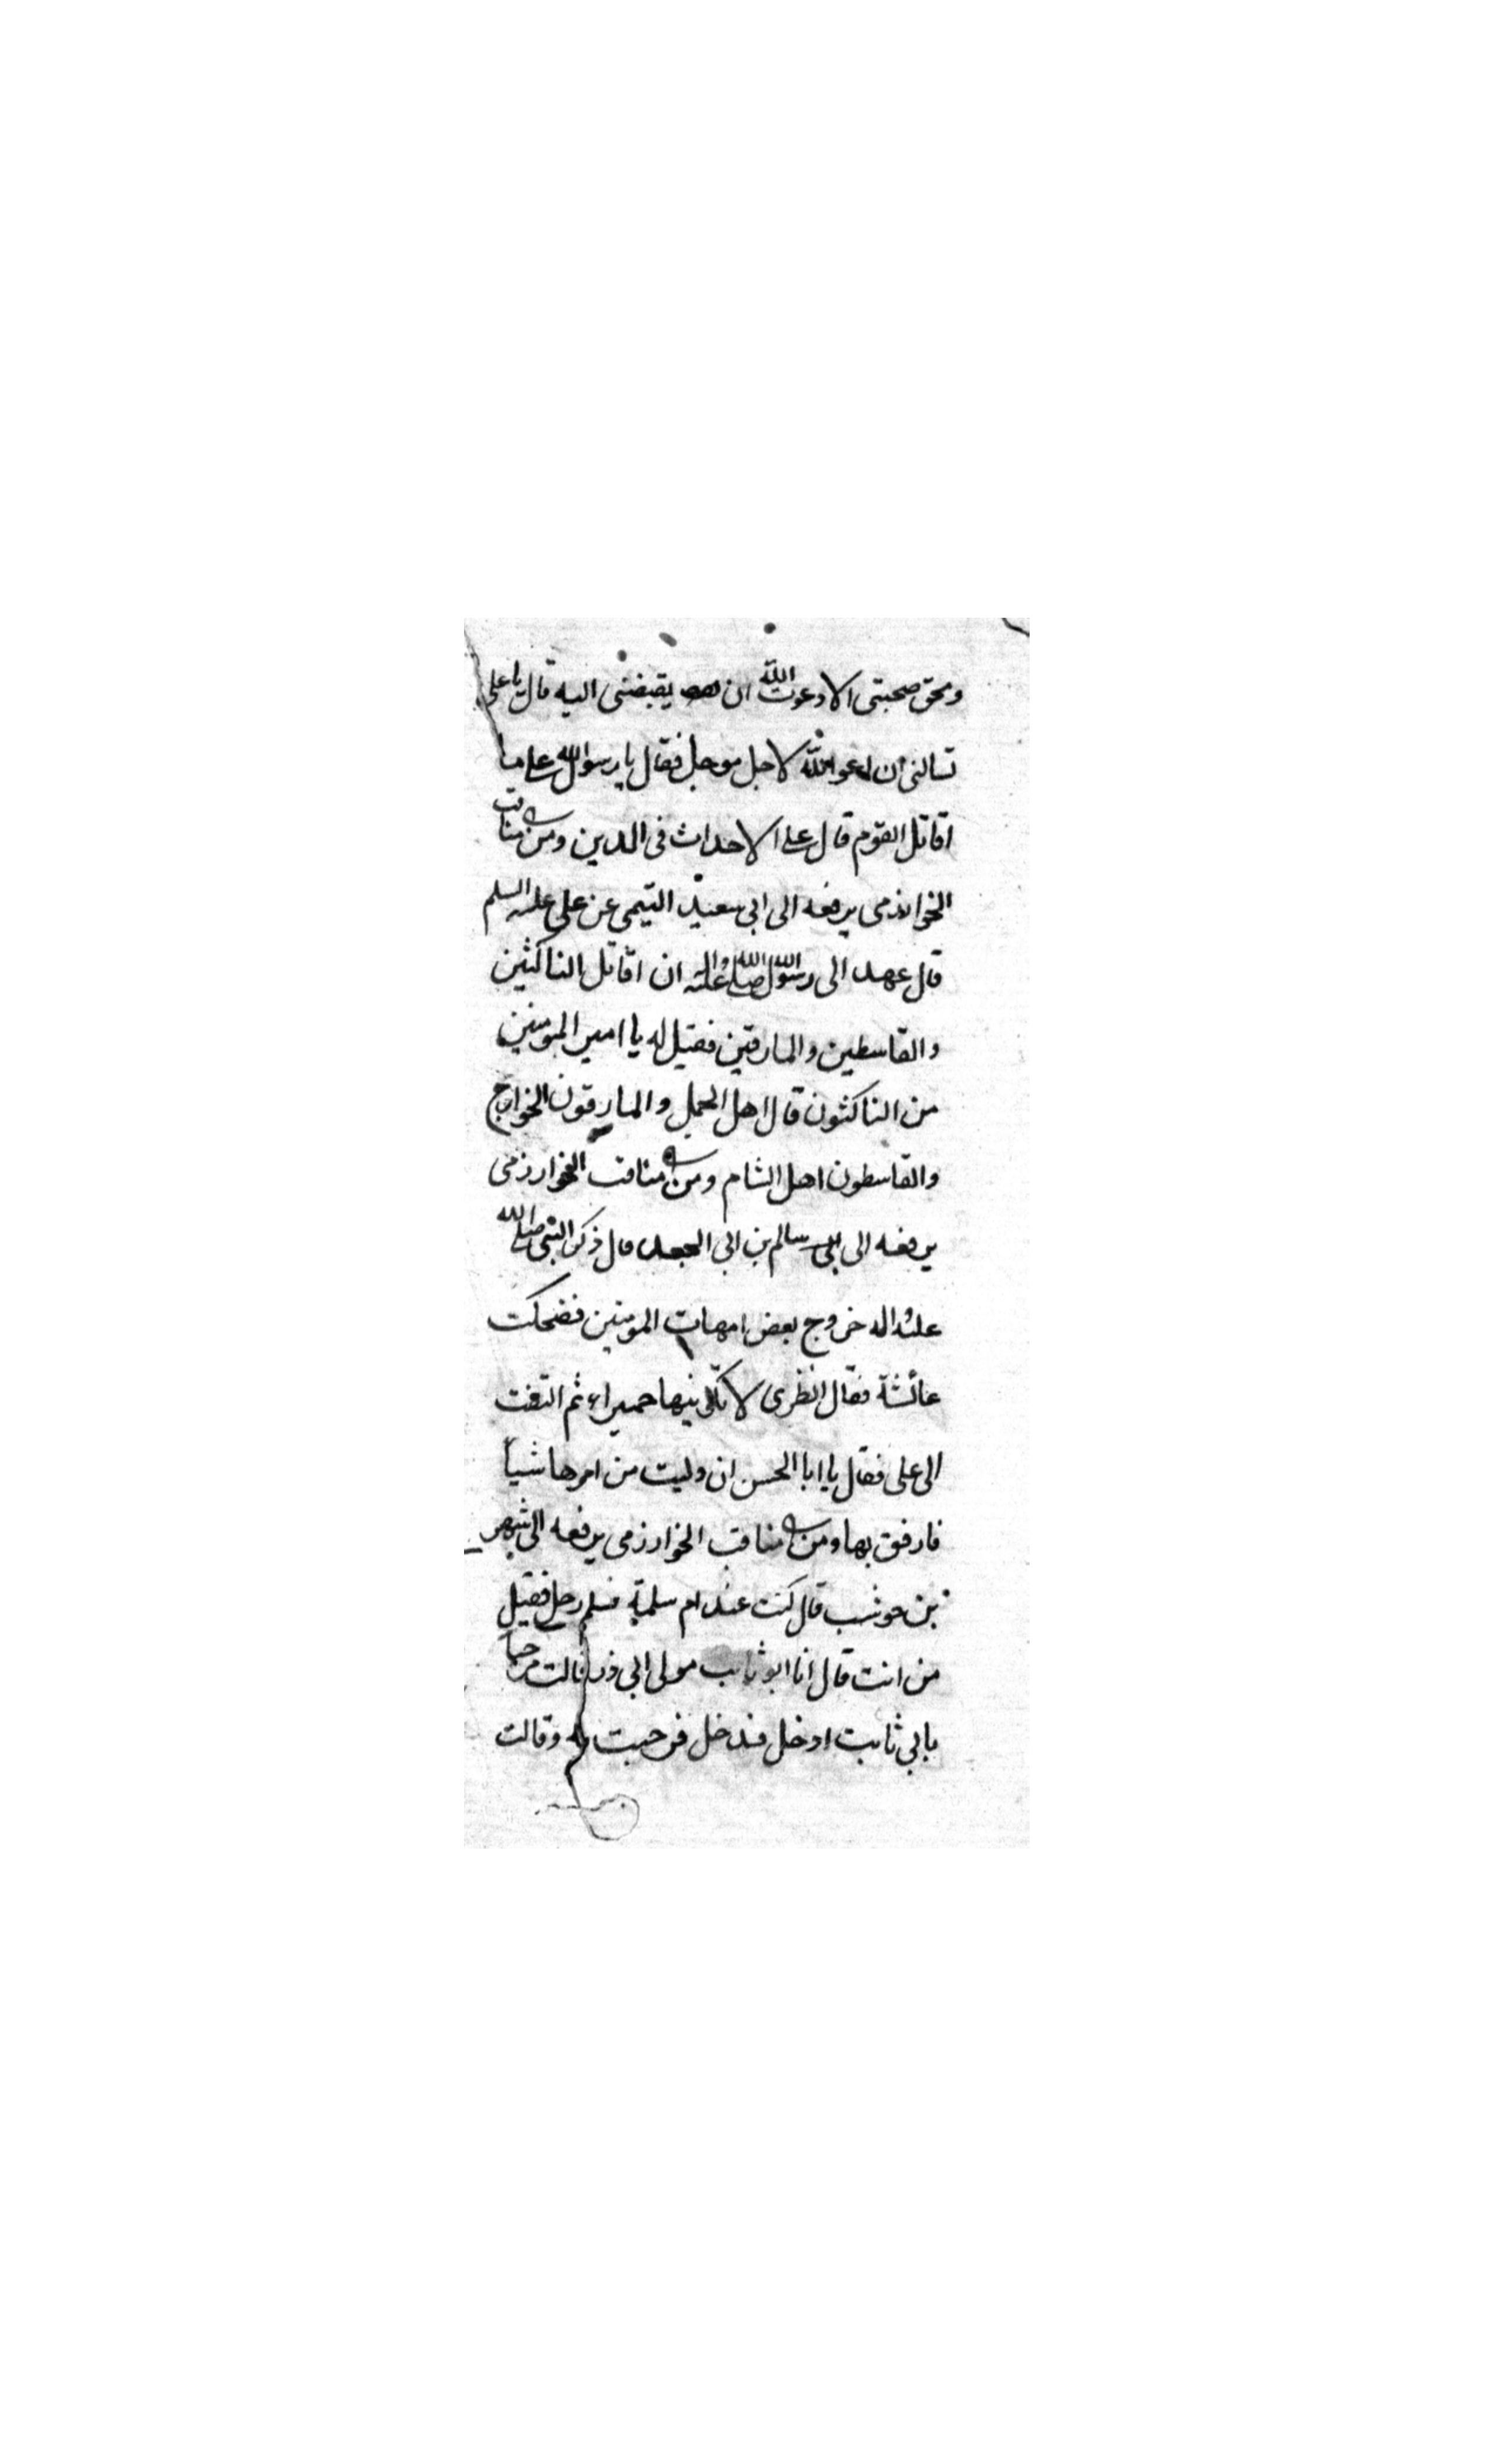 وبحق صحبتى الا دعوت الله ان يقبضنى اليه قال يا على
تسالنى ان ادعو الله لاجل موجل فقال يا رسول الله على ما
اقاتل القوم قال على الاحداث فى الدين ومن مناقب
الخوارزمى يرفعه الى ابى سعيد التيمى عن على عليه السلم
قال عهد الى رسول الله صلى الله عليه واله ان اقاتل الناكثين
والقاسطين والمارقين فقيل له يا امير المومنين
من الناكثون قال اهل الجمل والمارقون الخوارج
والقاسطون اهل الشام ومن مناقب الخوارزمى
يرفعه الى سالم بن ابى الجعد قال ذكر النبى صلى الله
عليه واله خروج بعض امهات المومنين فضحكت
عائشة فقال انظرى لا تكونيها حميراء ثم التفت
الى على فقال يا ابا الحسن ان وليت من امرها شيأ
فارفق بها ومن مناقب الخوارزمى يرفعه الى شهر
بن حوشب قال كنت عند ام سلمة فسلم رجل فقيل
من انت قال انا ابو ثابت مولى ابى ذر قالت مرحبا
بابى ثابت ادخل فدخل فرحبت به وقالت